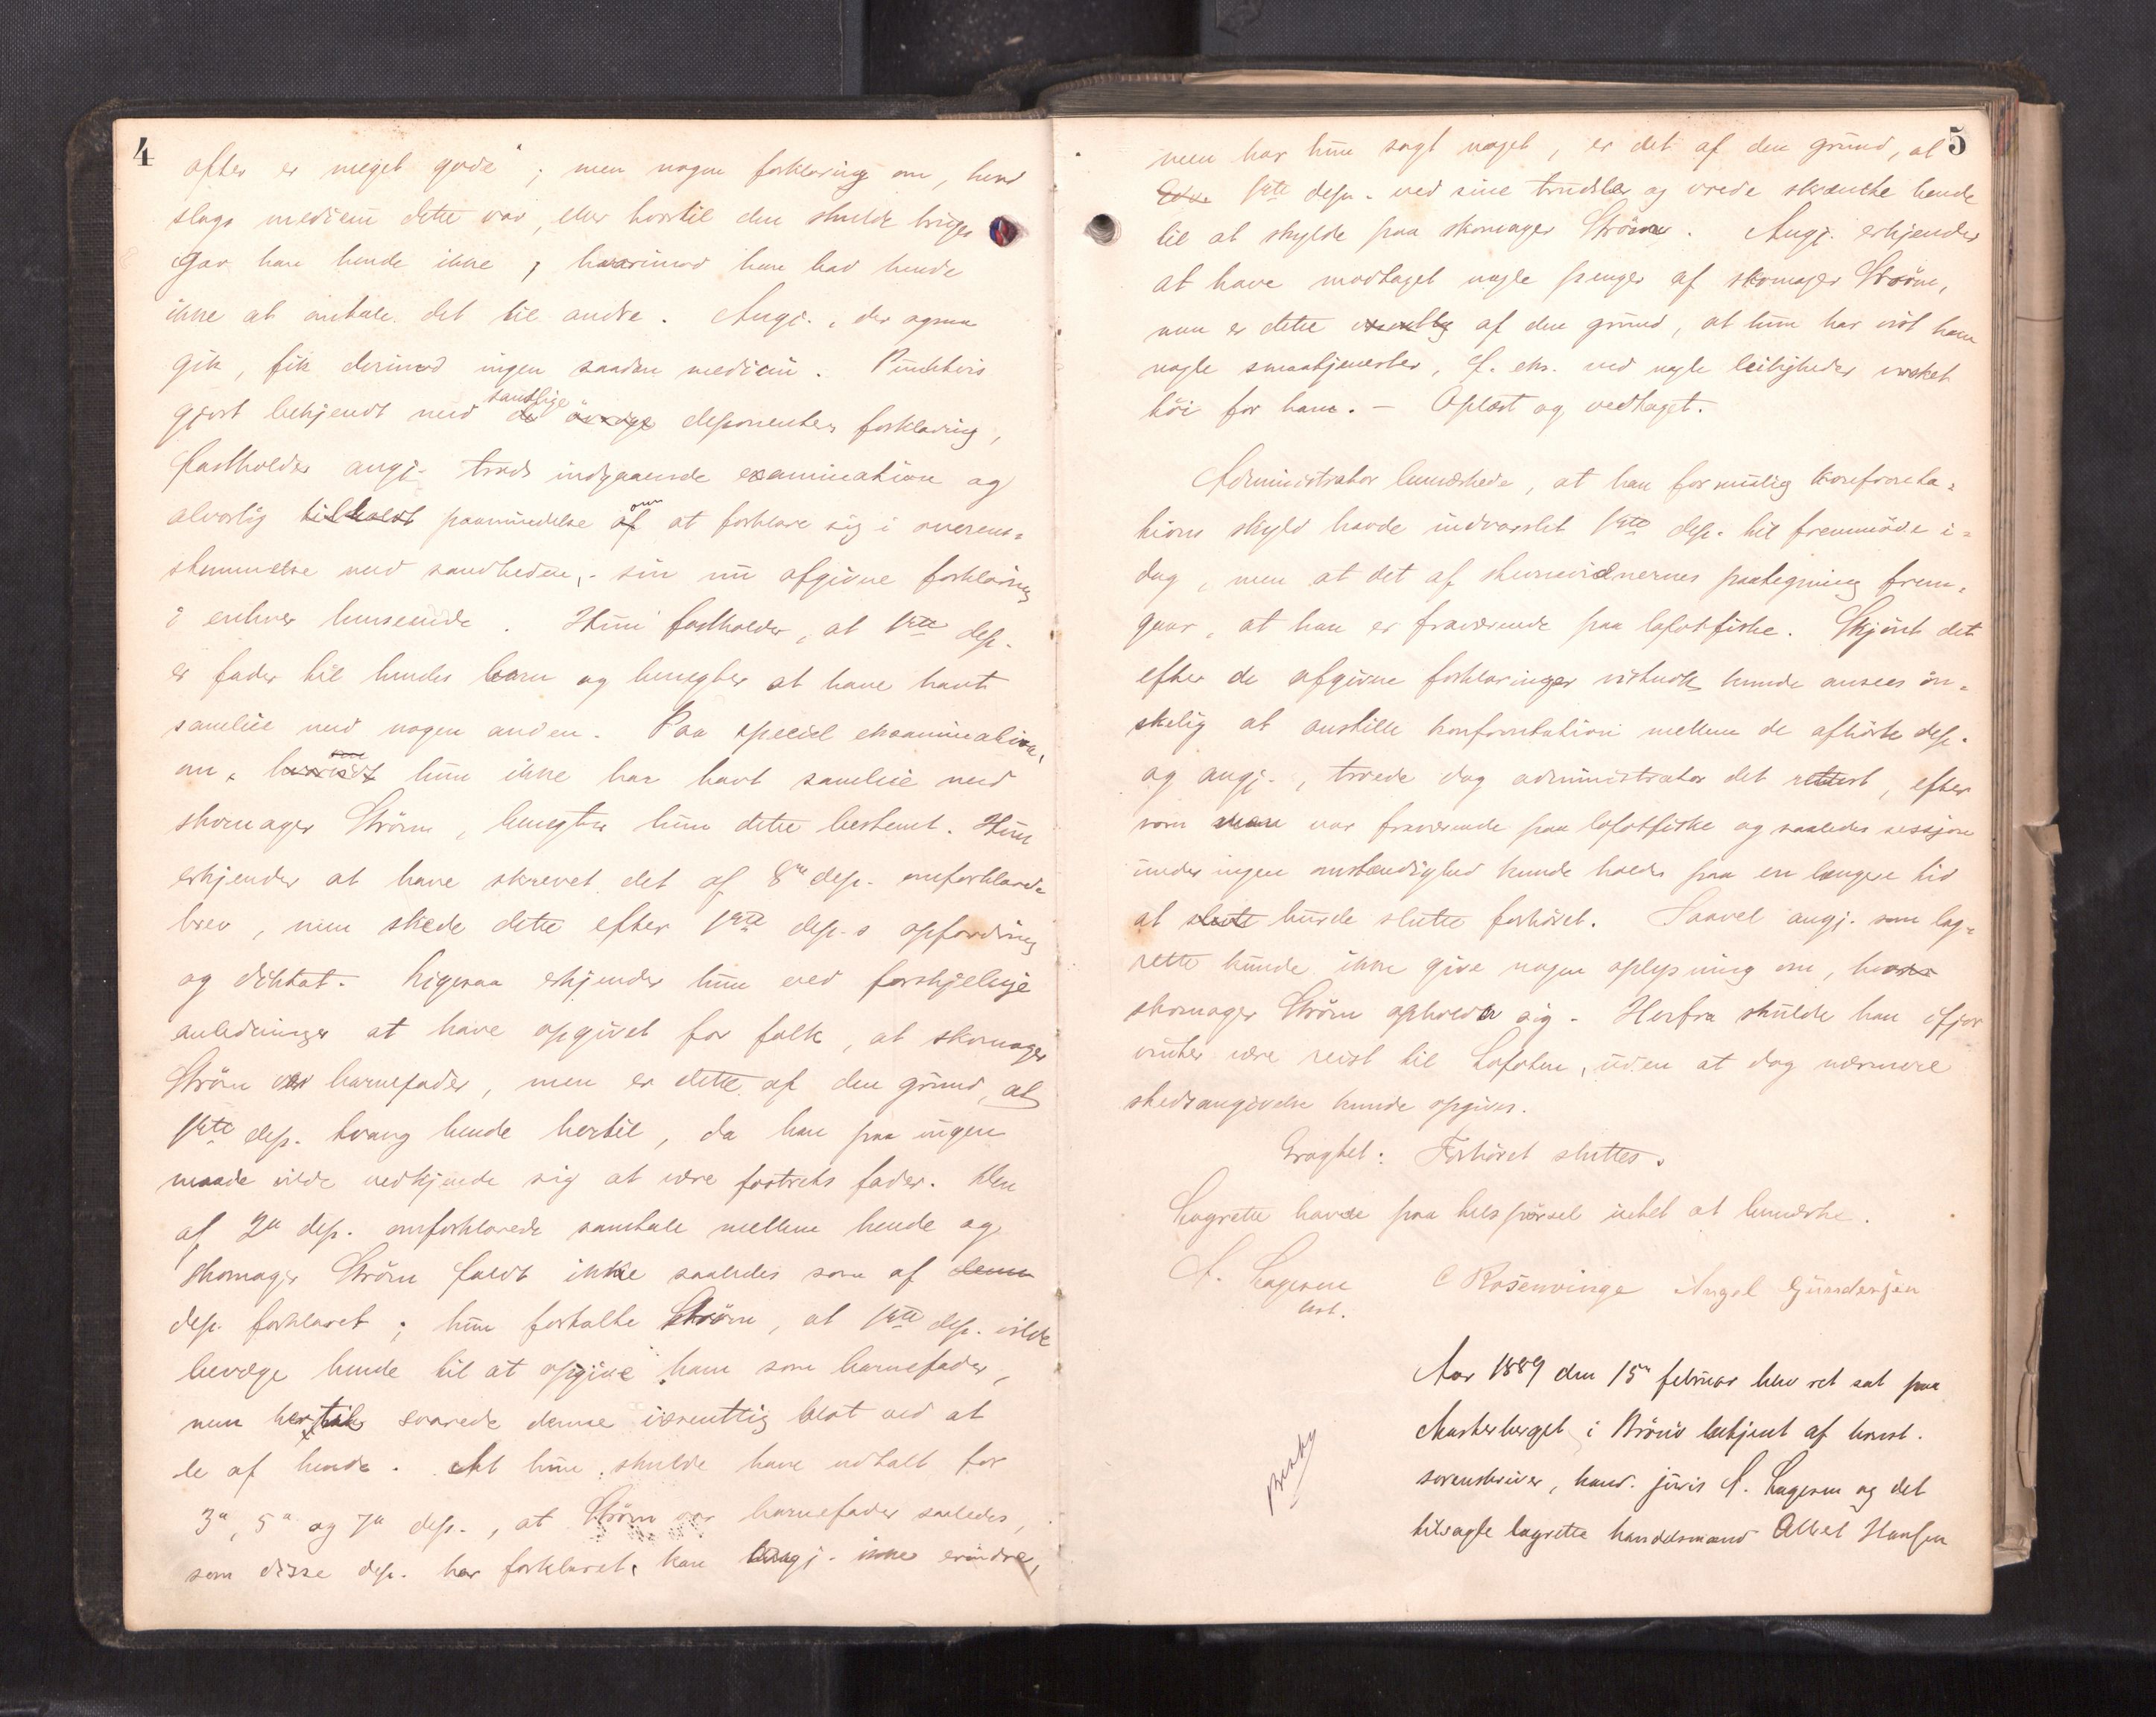 4
efter er meget gode"; men nogen forklaring om, hvad
slags medicin dette var, eller hvortil den skulde bruges
gav han hende ikke, hvorimod han bad hende
ikke at omtale det til andre. Angj., der ogsaa
gik, fik derimod ingen saadan medicin. Punktvis
gjort bekjendt med de øvrige samtlige deponenters forklaring,
fastholder angj. trods indgaaende examination og
alvorlig tilholdt paamindelse af om at forklare sig i overens-
stemmelse med sandheden, sin nu afgivne forklaring
i enhver henseende. Hun fastholder, at 1ste dep.
er fader til hendes barn og benegter at have havt
samleie med nogen anden. Paa speciel examination,
om hun ikke har havt samleie med
skomager Strøm, benegter hun dette bestemt. Hun
erkjender at have skrevet det af 8de dep. omforklarede
brev, men skede dette efter 1ste dep.s opfordring
og diktat. Ligesaa erkjender hun ved forskjelige
anledninger at have opgivet for folk, at skomager
Strøm var barnefader, men er dette af den grund, at
1ste dep. tvang hende hertil, da han paa ingen
maade vilde vedkjende sig at være fostrets fader. Den
af 2den dep. omforklarede samtale mellem hende og
skomager Strøm faldt ikke saaledes som af denne
dep. forklaret; hun fortalte Strøm, at 1ste dep. vilde
bevæge hende til at opgive ham som barnefader,
men hertil svarede denne isenttig blot ved at
le af hende. At hun skulde have udtalt for
3de, 5te og 7de dep., at Strøm var barnefader saaledes,
som disse dep. har forklaret, kan angj. ikke erindre,
5
men har hun sagt noget, er det af den grund, at
1ste dep. ved sine trudsler og vrede skræmte hende
til at skylde paa skomager Strøm. Angj. erkjender
at have modtaget nogle penger af skomager Strøm,
men er dette af den grund, at hun har vist ham
nogle smaatjenester, f. eks. ved nogle leiligheder vasket
tøi for ham. – Oplæst og vedtaget.
Administrator bemærkede, at han for mulig konfronta-
tions skyld havde indvarslet 1ste dep. til fremmøde i-
dag, men at det af stevnevidnernes paategning frem-
gaar, at han er fraværende paa lofotfiske. Skjønt det
efter de afgivne forklaringer vistnok kunde ansees øn-
skelig at anstille konfrontation mellem de afhørte dep.
og angj., troede dog administrator det rettest, efter
som man var fraværende paa lofotfiske og saaledes session
under ingen omstændighed kunde holdes paa en længere tid
at slutte burde slutte forhøret. Saavel angj. som lag-
rette kunde ikke give nogen oplysning om, hvor
skomager Strøm opholder sig. Herfra skulde han ifjor
vinter være reist til Lofoten, uden at dog nærmere
stedsangivelse kunde opgives.
Eragtet: Forhøret sluttes.
Lagrette havde paa tilspørsel intet at bemærke.
A. Lagesen C Rosenvinge Angel Gundersen
const.
Aar 1889 den 15de februar blev ret sat paa
Mosterberget i Brönö betjent af const.
sorenskriver, kand. juris A. Lagesen og det
tilsagte lagrette handelsmand Albert Hansen